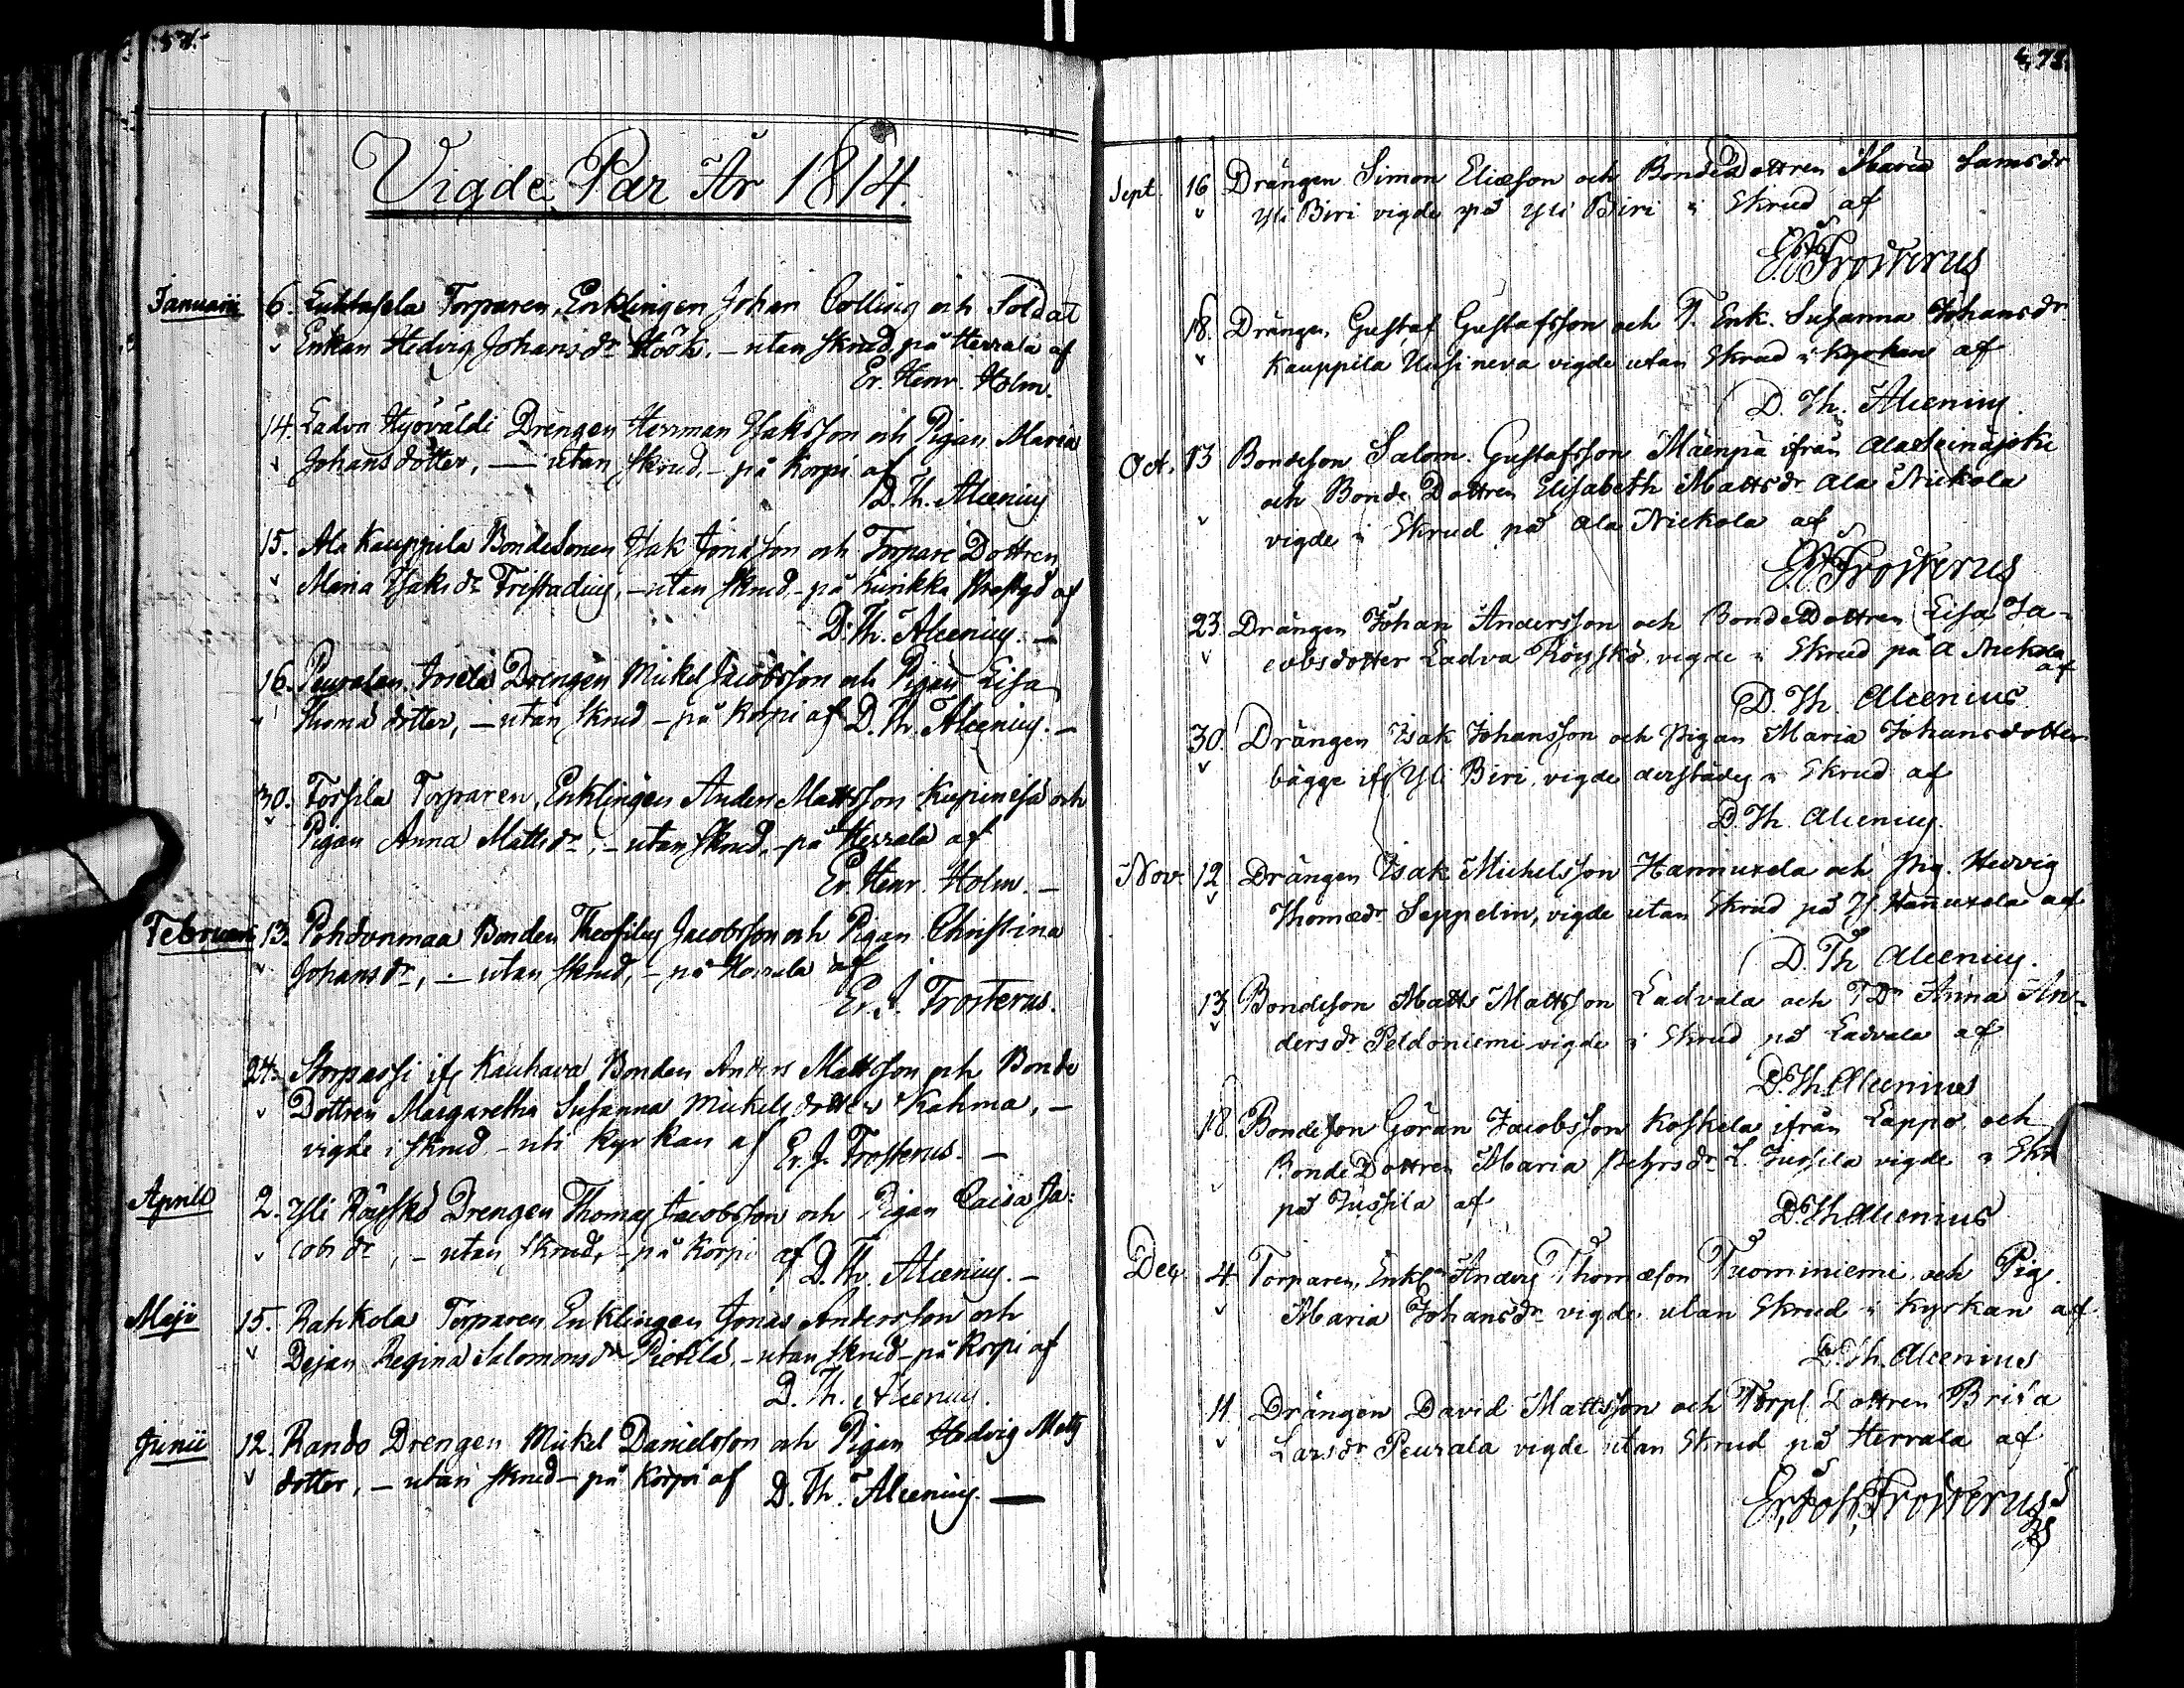 57.
Vigde Par År 1814.
Januarii 6. Luhtasela Torparen, Enklingen Johan Colling och Soldat
Enkan Hedvig Johansdr Höök. – utan skrud, på Herrala af
Er. Henr. Holm.
14. Ladva Hyövälldi Drengen Herrman Isaksson och Pigan Maria
Johansdotter, — utan skrud, – på Korpi af
D. Th. Alcenius
15. Ala Kauppila Bondesonen Isak Jonasson och Torpare Dottren
Maria Isaksdr Fristadius, – utan skrud, – på Kurikka af
D. Th. Alcenius. —
16. Drengen Mickel Jacobsson och Pigan Lisa
Thomæ dotter, – utan skrud – på Korpi af D. Th. Alcenius. –
30. Fossila Torparen, Enklingen Anders Mattsson och
Pigan Anna Mattsdr, – utan skrud, – på Herrala af
Er. Henr. Holm. –
Februarii 13. Pohdonmaa Bonden Theofilus Jacobsson och Pigan Christina
Johansdr, – utan skrud, – på Herrala af
Er. J. Frosterus.
24. Storpassi ifr Kauhava Bonden Anders Mattsson och Bonde
Dottren Margaretha Susanna Mickelsdotter Kahma, –
vigde i skrud – uti Kyrkan af Er. J. Frosterus. –
Aprill 2. Yli Röyskö Drengen Thomas Jacobsson och Pigan Caisa Ja:
cobsdr, – utan skrud, – på Korpi af D. Th. Alcenius. –
Maji 15. Rahkola Torparen Enklingen Jonas Andersson och
Dejan Regina Salomonsdr – utan skrud – på Korpi af
D. Th. Alcenius.
Junii 12. Rando Drengen Mickel Danielsson och Pigan Hedvig Matts
dotter, – utan skrud – på Korpi af D. Th. Alcenius. —
475.
Sept. 16 Drängen Simon Eliæson och BondeDottren Maria
Yli Biri vigde på Yli Biri i Skrud af
Frosterus
18. Drängen Gustaf Gustafsson och T. Enk. Susanna Johansdr
Kauppila Uusineva vigde utan Skrud i Kyrkan af
D. Th. Alcenius.
Oct. 13 Bondeson Salom. Gustafsson Mäenpä ifrån Ala Seinäjoki
och Bonde Dottren Elisabeth Mattsdr Ala Nickola
vigde i Skrud på Ala Nickola af
Frosterus
23. Drängen Johan Andersson och BondeDottren Lisa Ja-
cobsdotter Ladva Röyskö vigde i Skrud på A Nickola
af
D. Th. Alcenius
30. Drängen Isak Johansson och Pigan Maria Johansdotter
bägge ifr Yli Biri, vigde derstädes i Skrud af
D. Th. Alcenius.
Nov. 12 Drängen Isak Michelsson Hannuxela och Pig. Hedvig
Thomædr Seppelin, vigde utan Skrud på Hannuxela af
D. Th Alcenius.
13 Bondeson Matts Mattsson Ladvala och TDr Anna An-
dersdr Peldoniemi vigde i Skrud på Ladvala af
D. Th. Alcenius
18. Bondeson Göran Jacobsson Koskela ifrån Lappo, och
BondeDottren Maria Pehrsdr L. Jussila vigde i Skr
på Jussila af
D. Th Alcenius
Dec. 4. Torparen, Enkl. Anders Thomæson Tuominiemi och Pig.
Maria Johansdr vigde utan Skrud i Kyrkan af
D. Th. Alcenius
11. Drängen David Mattsson och Torp. Dottren Brita
Larsdr Peurala vigde utan Skrud på Herrala af
Er. Joh. Frosterus